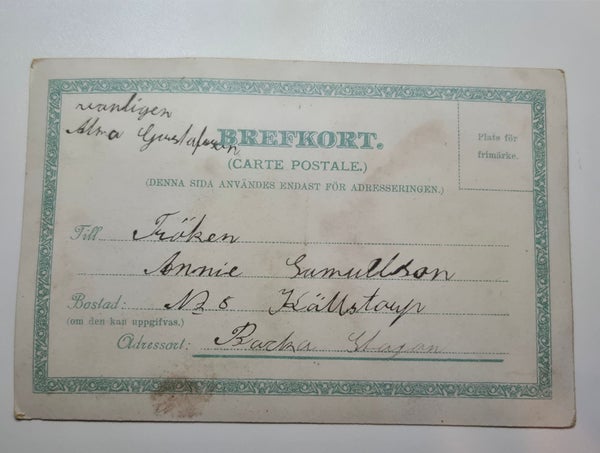 vänligen
Alma Gustafsson
BREFKORT.
(CARTE POSTALE.)
(DENNA SIDA ANVÄNDES ENDAST FÖR ADRESSERINGEN.)
Plats för
frimärke.
Till Fröken
Annie Samuelson
Bostad: No 8 Källstorp
(om den kan uppgifvas.)
Adressort: Backa